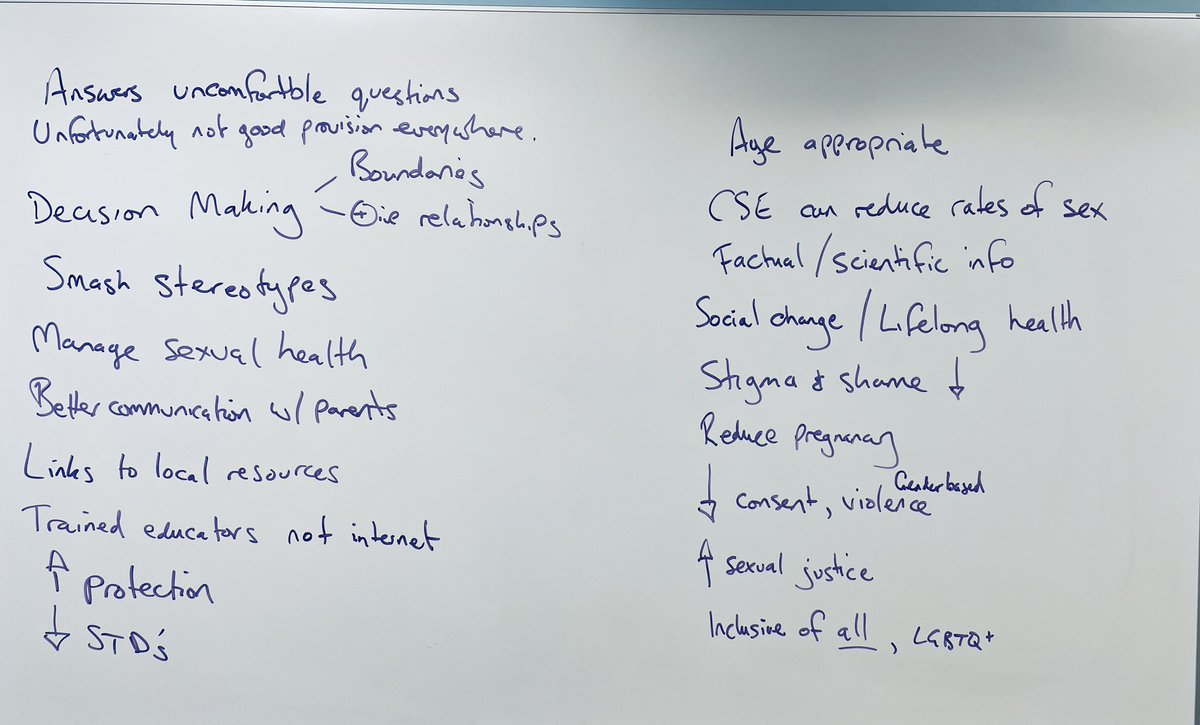 Answers uncomfortble questions
Unfortunately not good provision everywhere.
Boundaries
Decision Making
⊕ive relationships
Smash stereotypes
Manage sexual health
Better communication w/ parents
Links to local resources
Trained educators not internet
↑ protection
↓ STD's
Age appropriate
CSE can reduce rates of sex
Factual/scientific info
Social change / Lifelong health
Stigma & shame ↓
Reduce pregnancy
Gender based
↓ consent, violence
↑ sexual justice
Inclusive of all, LGBTQ+